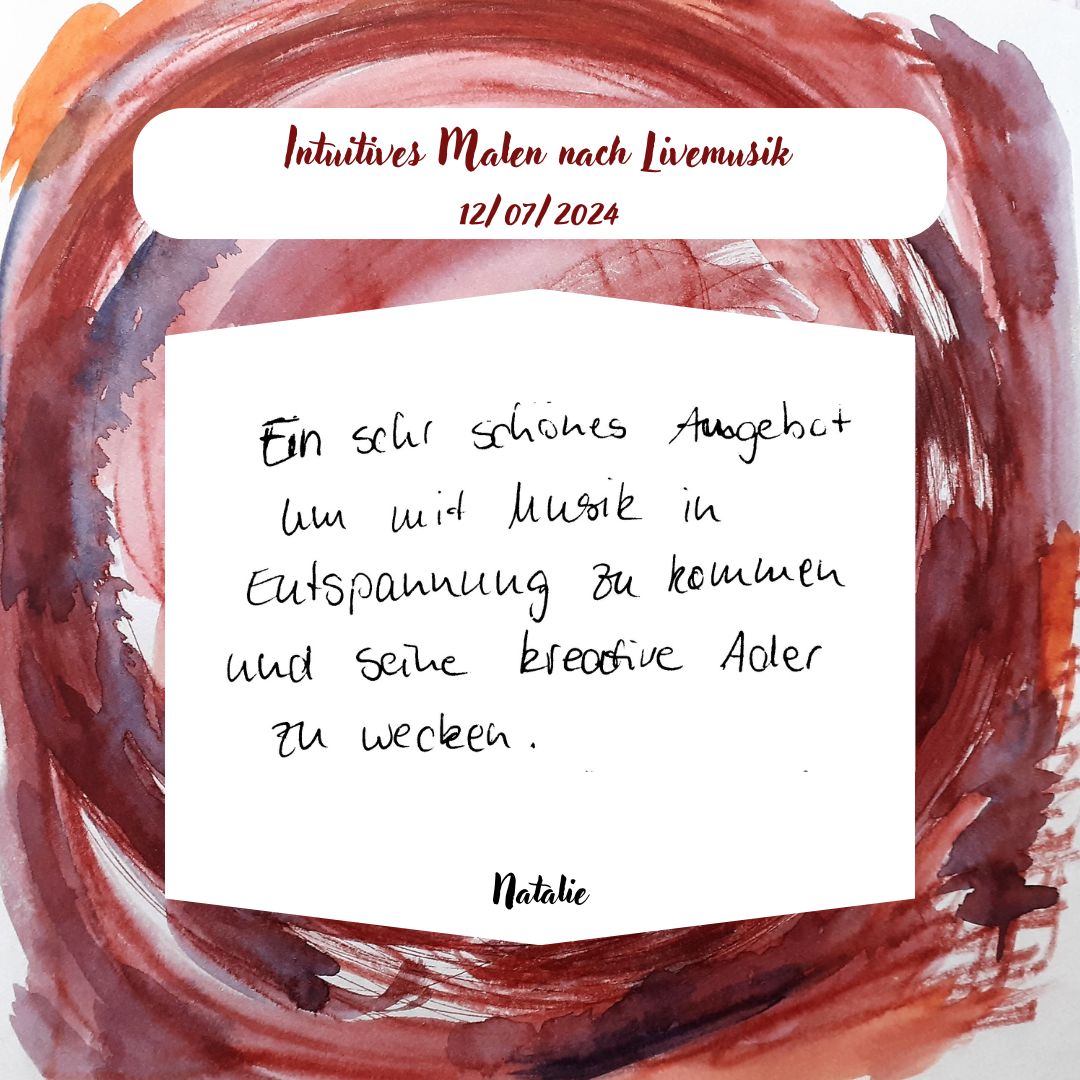 Intuitives Malen nach Livemusik
12/07/2024
Ein sehr schönes Angebot
um mit Musik in
Entspannung zu kommen
und seine kreative Ader
zu wecken.
Natalie